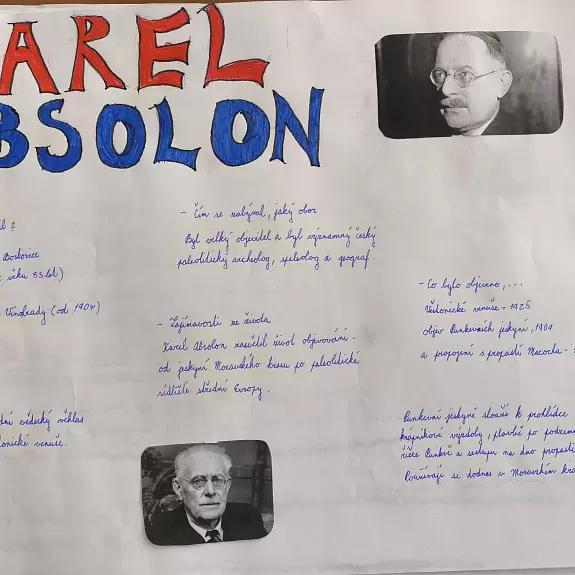 AREL
BSOLON
- Čím se zabýval, jaký obor
Byl velký objevitel a byl významný český
paleolitický archeolog, speleolog a geograf.
l?
Boskovice
věku 83 let)
Vinohrady (od 1904)
- Zajímavosti ze života
Karel Absolon zasvětil život objevování -
od jeskyní Moravského krasu po paleolitická
sídliště střední Evropy.
- Co bylo objeveno, ...
Věstonická venuše - 1925
objev Punkevních jeskyní, 1909
a propojení s propastí Macocha -
dní vědecký věhlas
tonické venuše.
Punkevní jeskyně slouží k prohlídce
krápníkové výzdoby, plavbě po podzem
říčce Punkvě a sestupu na dno propasti
Používají se dodnes v Moravském kra